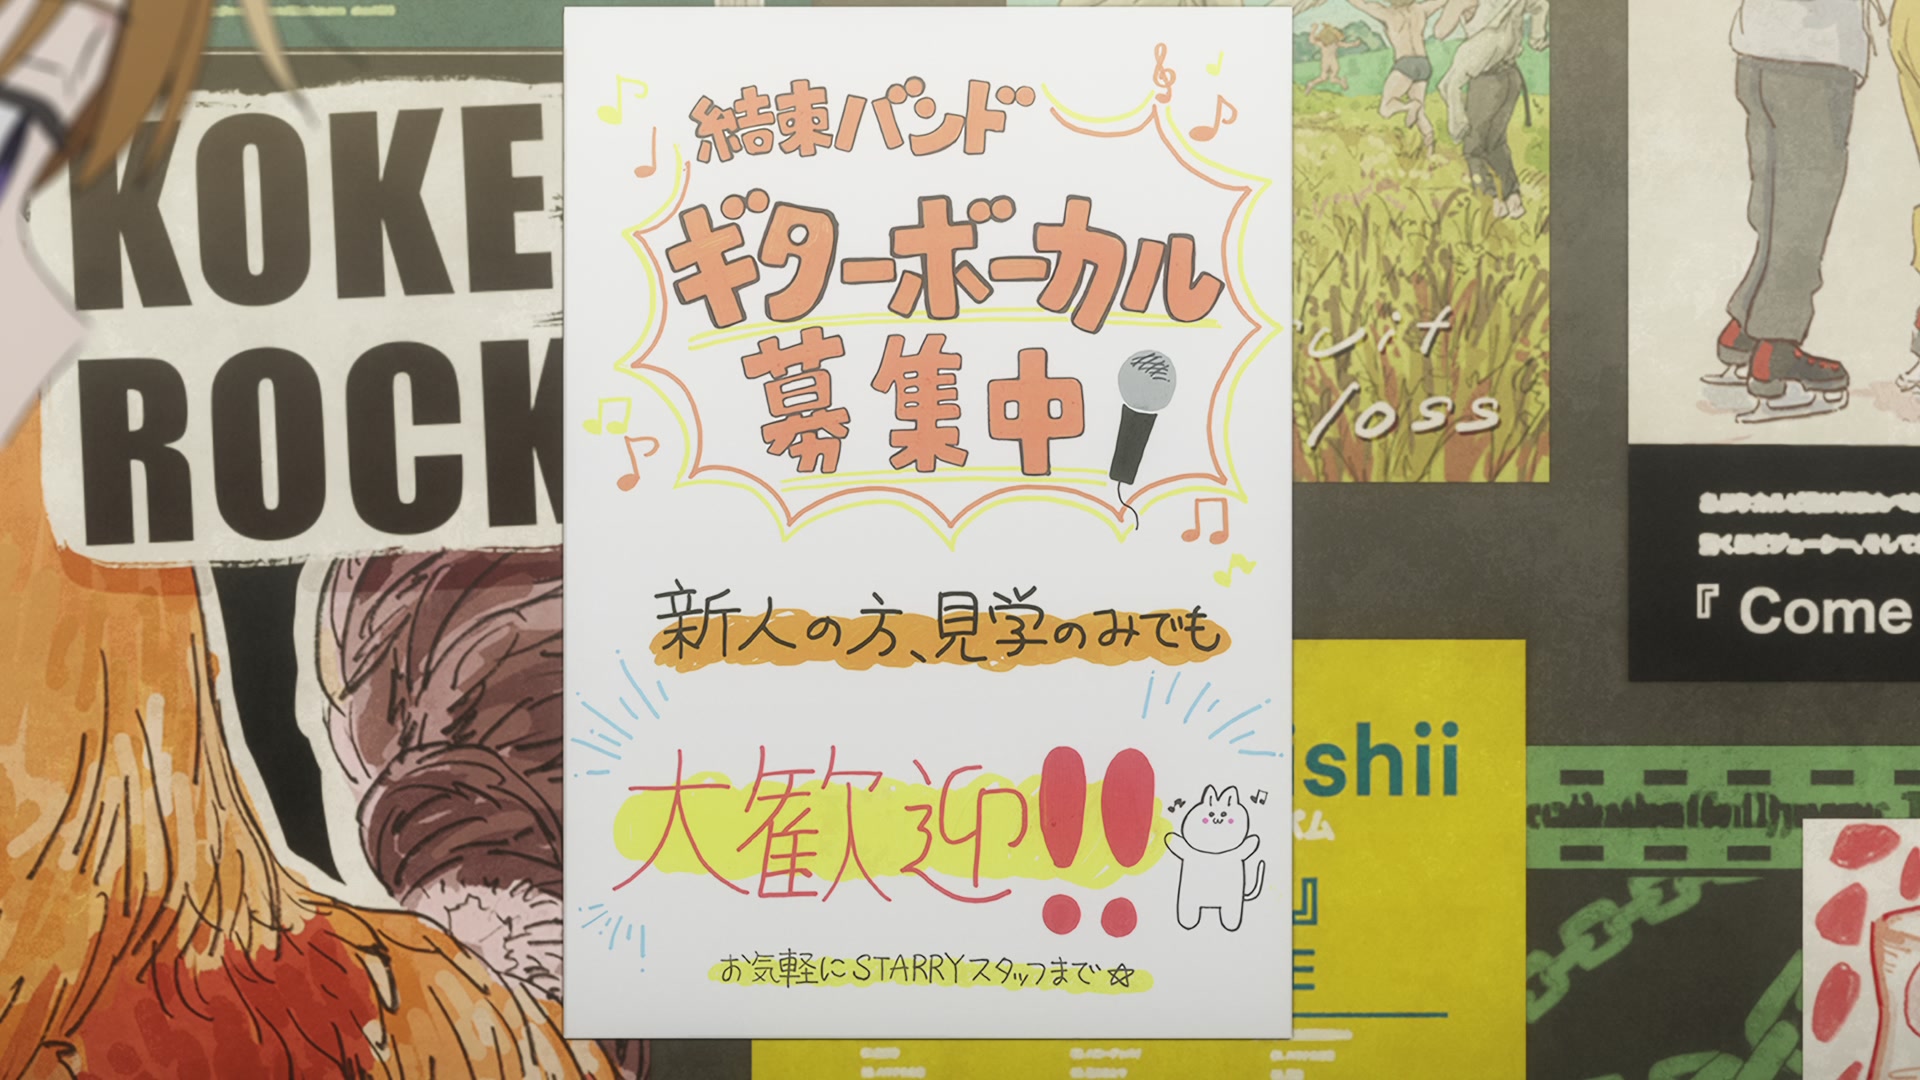 KOKE
ROCK
結束バンド
ギターボーカル
募集中
新人の方、見学のみでも
大歓迎!!
お気軽にSTARRYスタッフまで☆
uit
loss
『Come
ishii